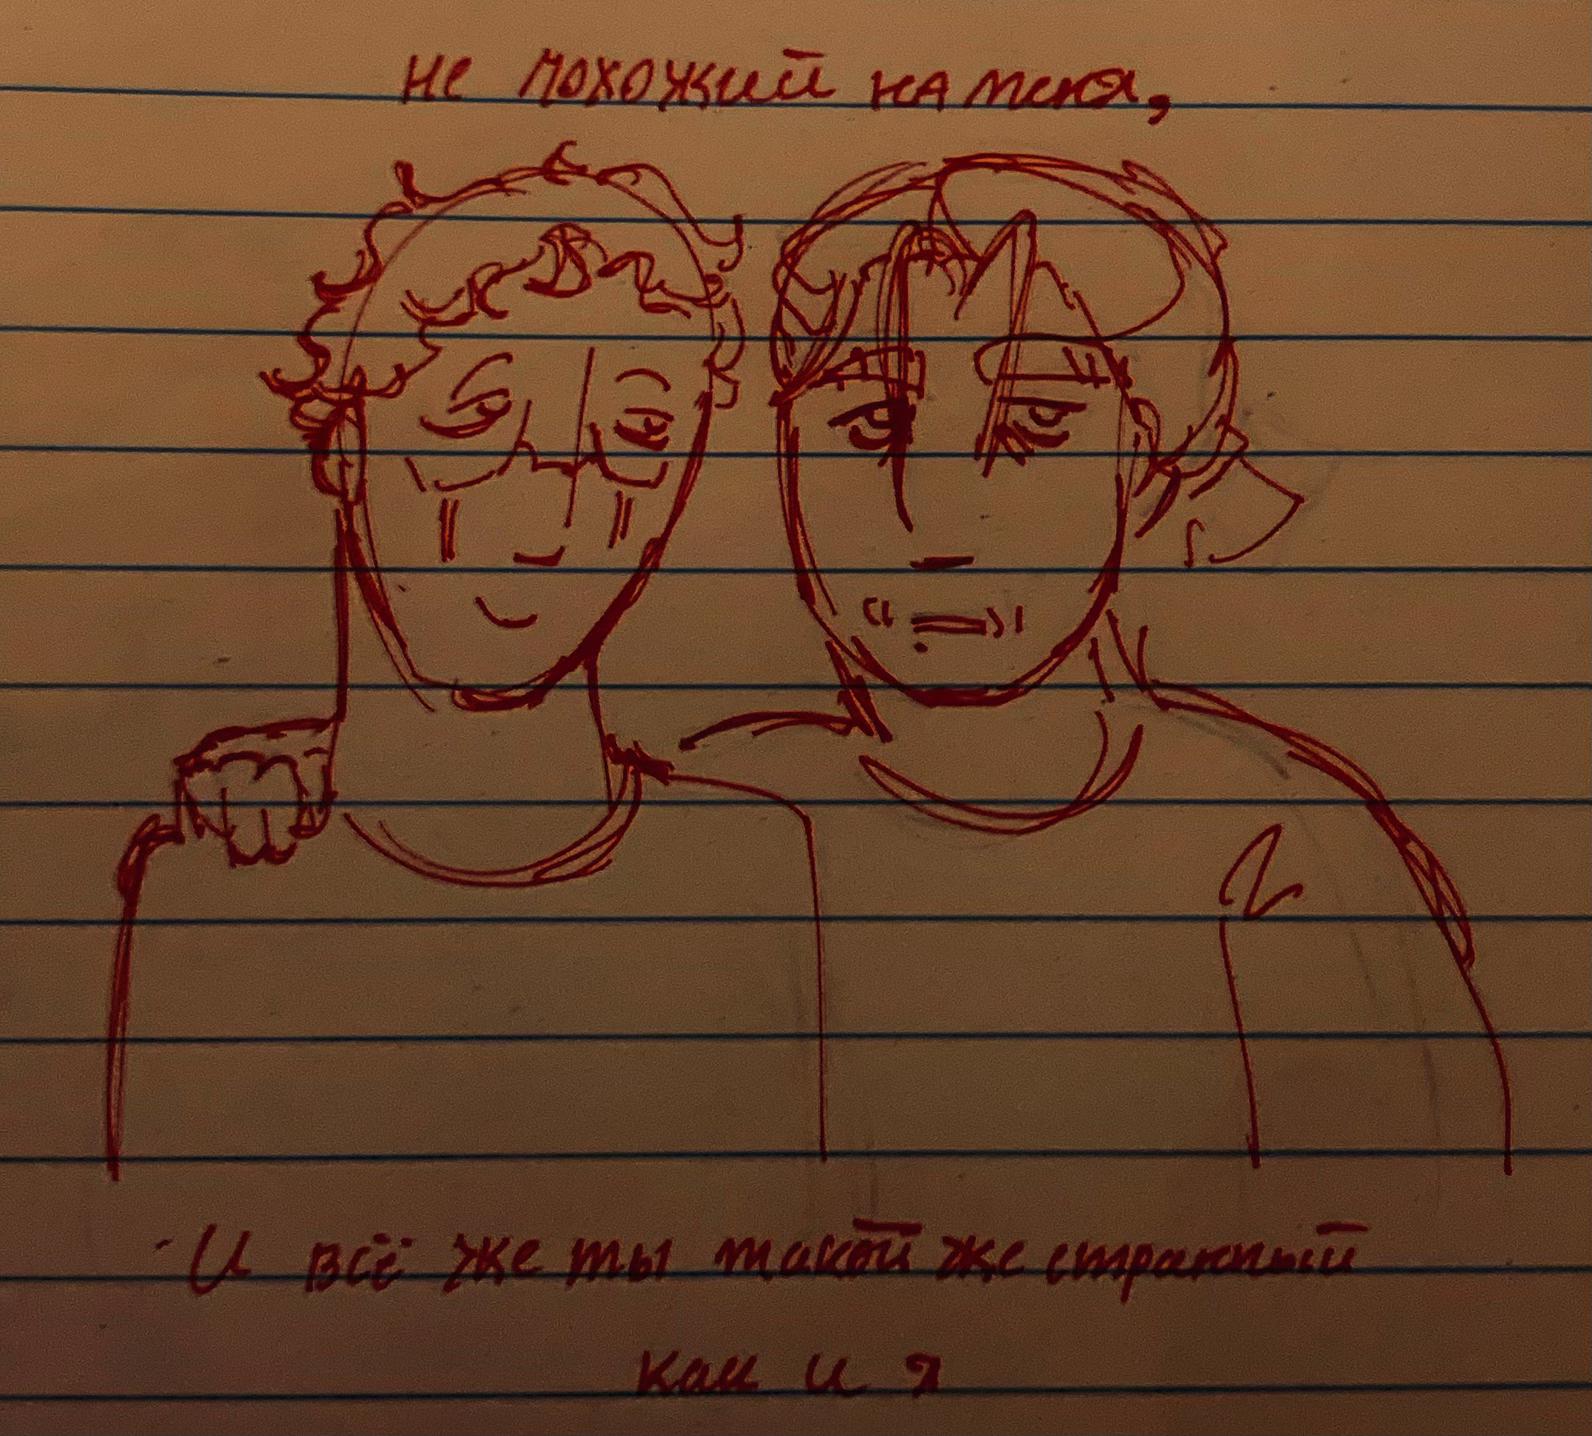 не похожий на меня,
И всё же ты такой же странный
как и я